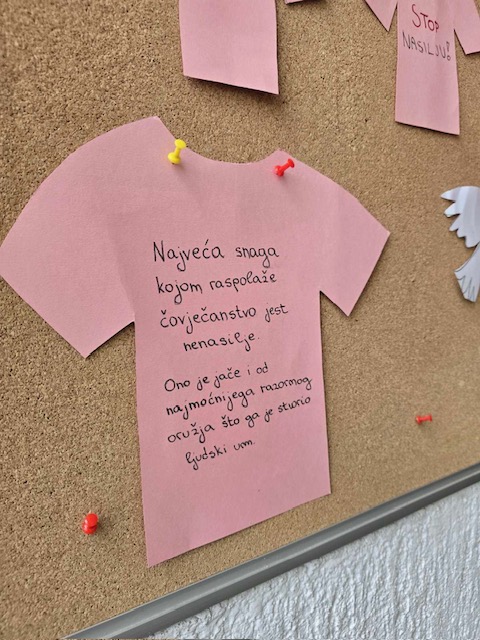 STOP
NASILJU!
Najveća snaga
kojom raspolaže
čovječanstvo jest
nenasilje.
Ono je jače i od
najmoćnijega razornog
oružja što ga je stvorio
ljudski um.